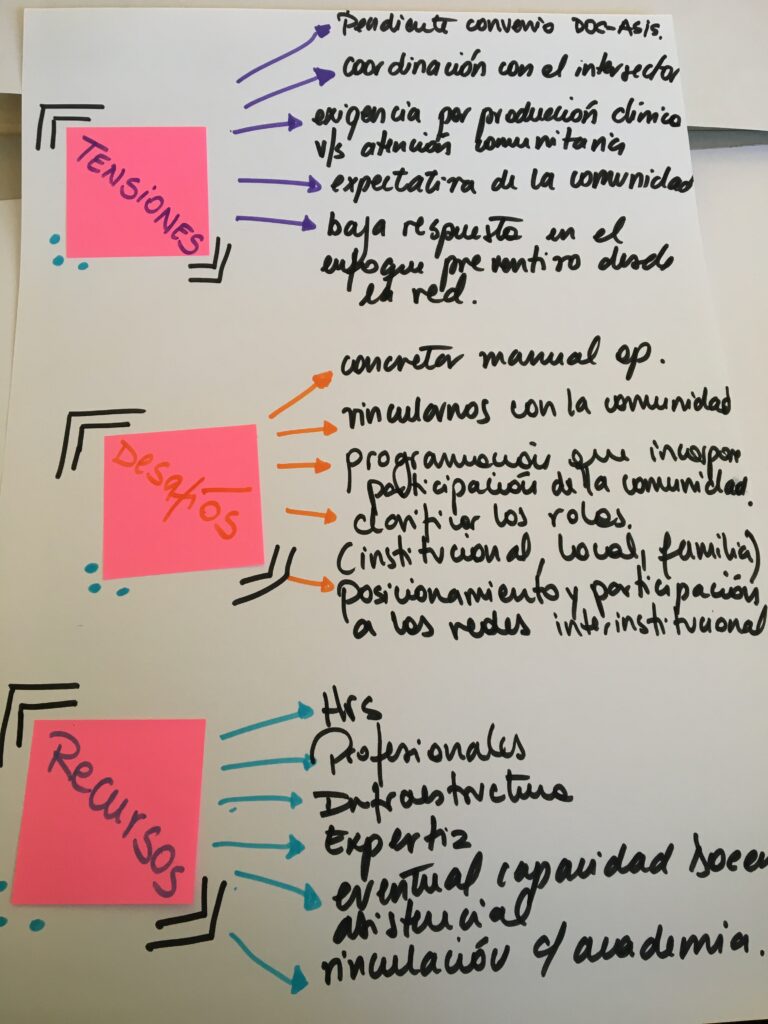 TENSIONES
Pendiente convenio DOC-Asis.
coordinación con el intersector
exigencia por producción clínica
v/s atención comunitaria
expectativa de la comunidad
baja respuesta en el
enfoque preventivo desde
la red.
Desafíos
concretar manual op.
vincularnos con la comunidad
programación que incorpore
participación de la comunidad.
clarificar los roles.
(institucional, local, familia)
posicionamiento y participación
a las redes interinstitucional
Recursos
Hrs
Profesionales
Infraestructura
Expertiz
eventual capacidad docen
asistencial
vinculación c/ academia.